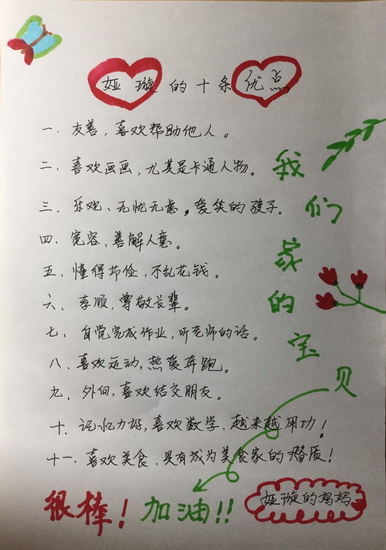 娅璇的十条优点
一、友善,喜欢帮助他人。
二、喜欢画画,尤其是卡通人物。
三、乐观、无忧无虑,爱笑的孩子。
四、宽容,善解人意。
五、懂得节俭,不乱花钱。
六、孝顺,尊敬长辈。
七、自觉完成作业,听老师的话。
八、喜欢运动,热爱奔跑。
九、外向,喜欢结交朋友。
十、记忆力好,喜欢数学,越来越用功!
十一、喜欢美食,具有成为美食家的潜质!
我们家的宝贝
很棒!加油!!
娅璇的妈妈